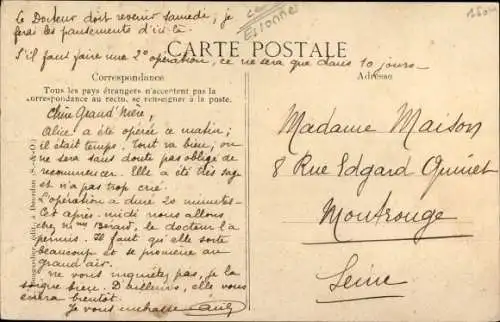 Le Docteur doit revenir samedi; je
ferai les pansements d'ici là.
S'il faut faire une 2e opération, ce ne sera que dans 10 jours_
Essonne
CARTE POSTALE
Correspondance
Tous les pays étrangers n'acceptent pas la
correspondance au recto, se renseigner à la poste.
Adresse
Chère Grand' Mère,
Alice a été opérée ce matin;
il était temps. Tout va bien; on
ne sera sans doute pas obligé de
recommencer. Elle a été très sage
et n'a pas trop crié.
L'opération a duré 20 minutes_
Cet après-midi nous allons
chez Mme Bérard, le docteur l'a
permis. Il faut qu'elle sorte
beaucoup et se promène au
grand air.
ne vous inquiétez pas, je la
soigne bien. D'ailleurs, elle vous
écrira bientôt.
Je vous embrasse
Madame Maison
8 Rue Edgard Quinet
Montrouge
Seine